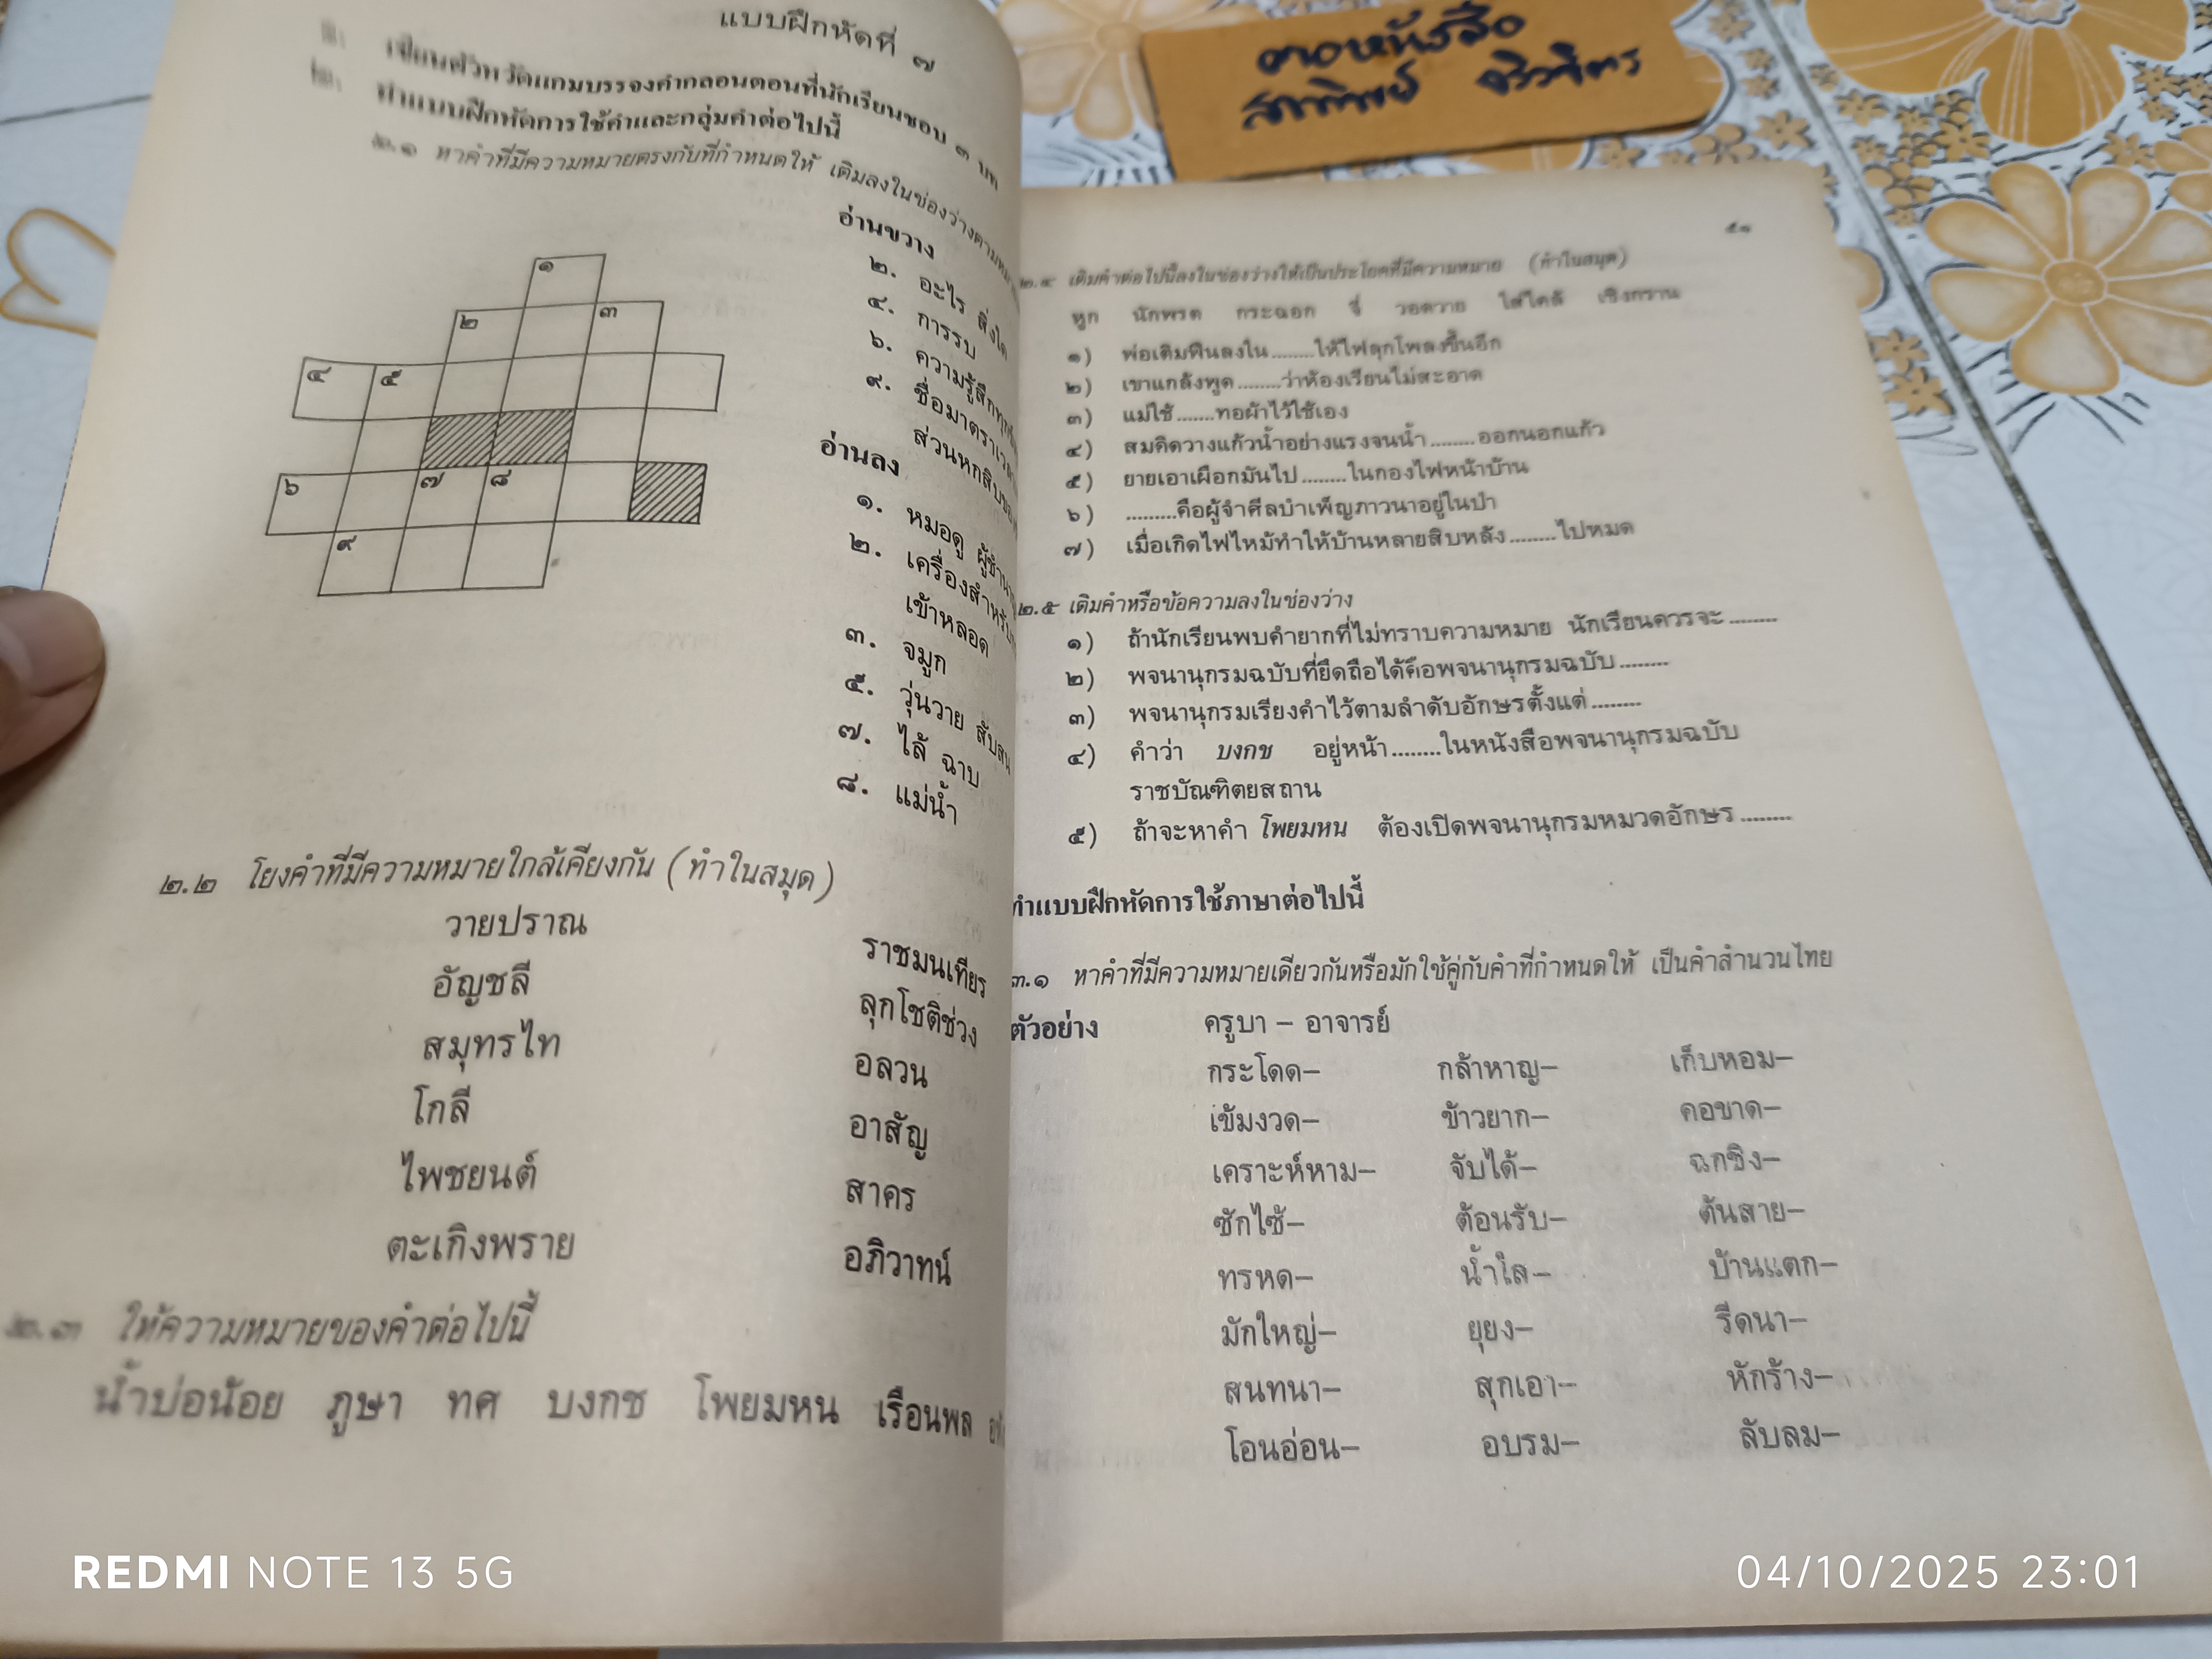 แบบฝึกหัดที่ ๗
เขียนศัพท์ แกมบรรจงคำกลอนตอนที่นักเรียนชอบ ๓ บท
๒. ทำแบบฝึกหัดการใช้คำและกลุ่มคำต่อไปนี้
๒.๑ หาคำที่มีความหมายตรงกับที่กำหนดให้ เติมลงในช่องว่างตามหมาย
๑
๒ ๓
๔ ๕
๖ ๗ ๘
๙
อ่านขวาง
๒. อะไร สิ่งใด
๔. การรบ
๖. ความรู้สึกทุกข์
๙. ชื่อมาตราเวลา
ส่วนหกสิบของ
อ่านลง
๑. หมอดู ผู้ชำนาญ
๒. เครื่องสำหรับ
เข้าหลอด
๓. จมูก
๕. วุ่นวาย สับสน
๗. ไล้ ฉาบ
๘. แม่น้ำ
๒.๒ โยงคำที่มีความหมายใกล้เคียงกัน (ทำในสมุด)
วายปราณ ราชมนเทียร
อัญชลี ลุกโชติช่วง
สมุทรไท อลวน
โกลี อาสัญ
ไพชยนต์ สาคร
ตะเกิงพราย อภิวาทน์
๒.๓ ให้ความหมายของคำต่อไปนี้
น้ำบ่อน้อย ภูษา ทศ บงกช โพยมหน เรือนพล
๕๑
๒.๔ เติมคำต่อไปนี้ลงในช่องว่างให้เป็นประโยคที่มีความหมาย (ทำในสมุด)
หูก นักพรต กระฉอก จี่ วอดวาย ใส่ไคล้ เชิงกราน
๑) พ่อเติมฟืนลงใน........ให้ไฟลุกโพลงขึ้นอีก
๒) เขาแกล้งพูด........ว่าห้องเรียนไม่สะอาด
๓) แม่ใช้.......ทอผ้าไว้ใช้เอง
๔) สมคิดวางแก้วน้ำอย่างแรงจนน้ำ........ออกนอกแก้ว
๕) ยายเอาเผือกมันไป........ในกองไฟหน้าบ้าน
๖) .........คือผู้จำศีลบำเพ็ญภาวนาอยู่ในป่า
๗) เมื่อเกิดไฟไหม้ทำให้บ้านหลายสิบหลัง........ไปหมด
๒.๕ เติมคำหรือข้อความลงในช่องว่าง
๑) ถ้านักเรียนพบคำยากที่ไม่ทราบความหมาย นักเรียนควรจะ........
๒) พจนานุกรมฉบับที่ยึดถือได้คือพจนานุกรมฉบับ........
๓) พจนานุกรมเรียงคำไว้ตามลำดับอักษรตั้งแต่........
๔) คำว่า บงกช อยู่หน้า........ในหนังสือพจนานุกรมฉบับ
ราชบัณฑิตยสถาน
๕) ถ้าจะหาคำ โพยมหน ต้องเปิดพจนานุกรมหมวดอักษร........
ทำแบบฝึกหัดการใช้ภาษาต่อไปนี้
๓.๑ หาคำที่มีความหมายเดียวกันหรือมักใช้คู่กับคำที่กำหนดให้ เป็นคำสำนวนไทย
ตัวอย่าง ครูบา – อาจารย์
กระโดด– กล้าหาญ– เก็บหอม–
เข้มงวด– ข้าวยาก– คอขาด–
เคราะห์หาม– จับได้– ฉกชิง–
ซักไซ้– ต้อนรับ– ต้นสาย–
ทรหด– น้ำใส– บ้านแตก–
มักใหญ่– ยุยง– รีดนา–
สนทนา– สุกเอา– หักร้าง–
โอนอ่อน– อบรม– ลับลม–
REDMI NOTE 13 5G
04/10/2025 23:01